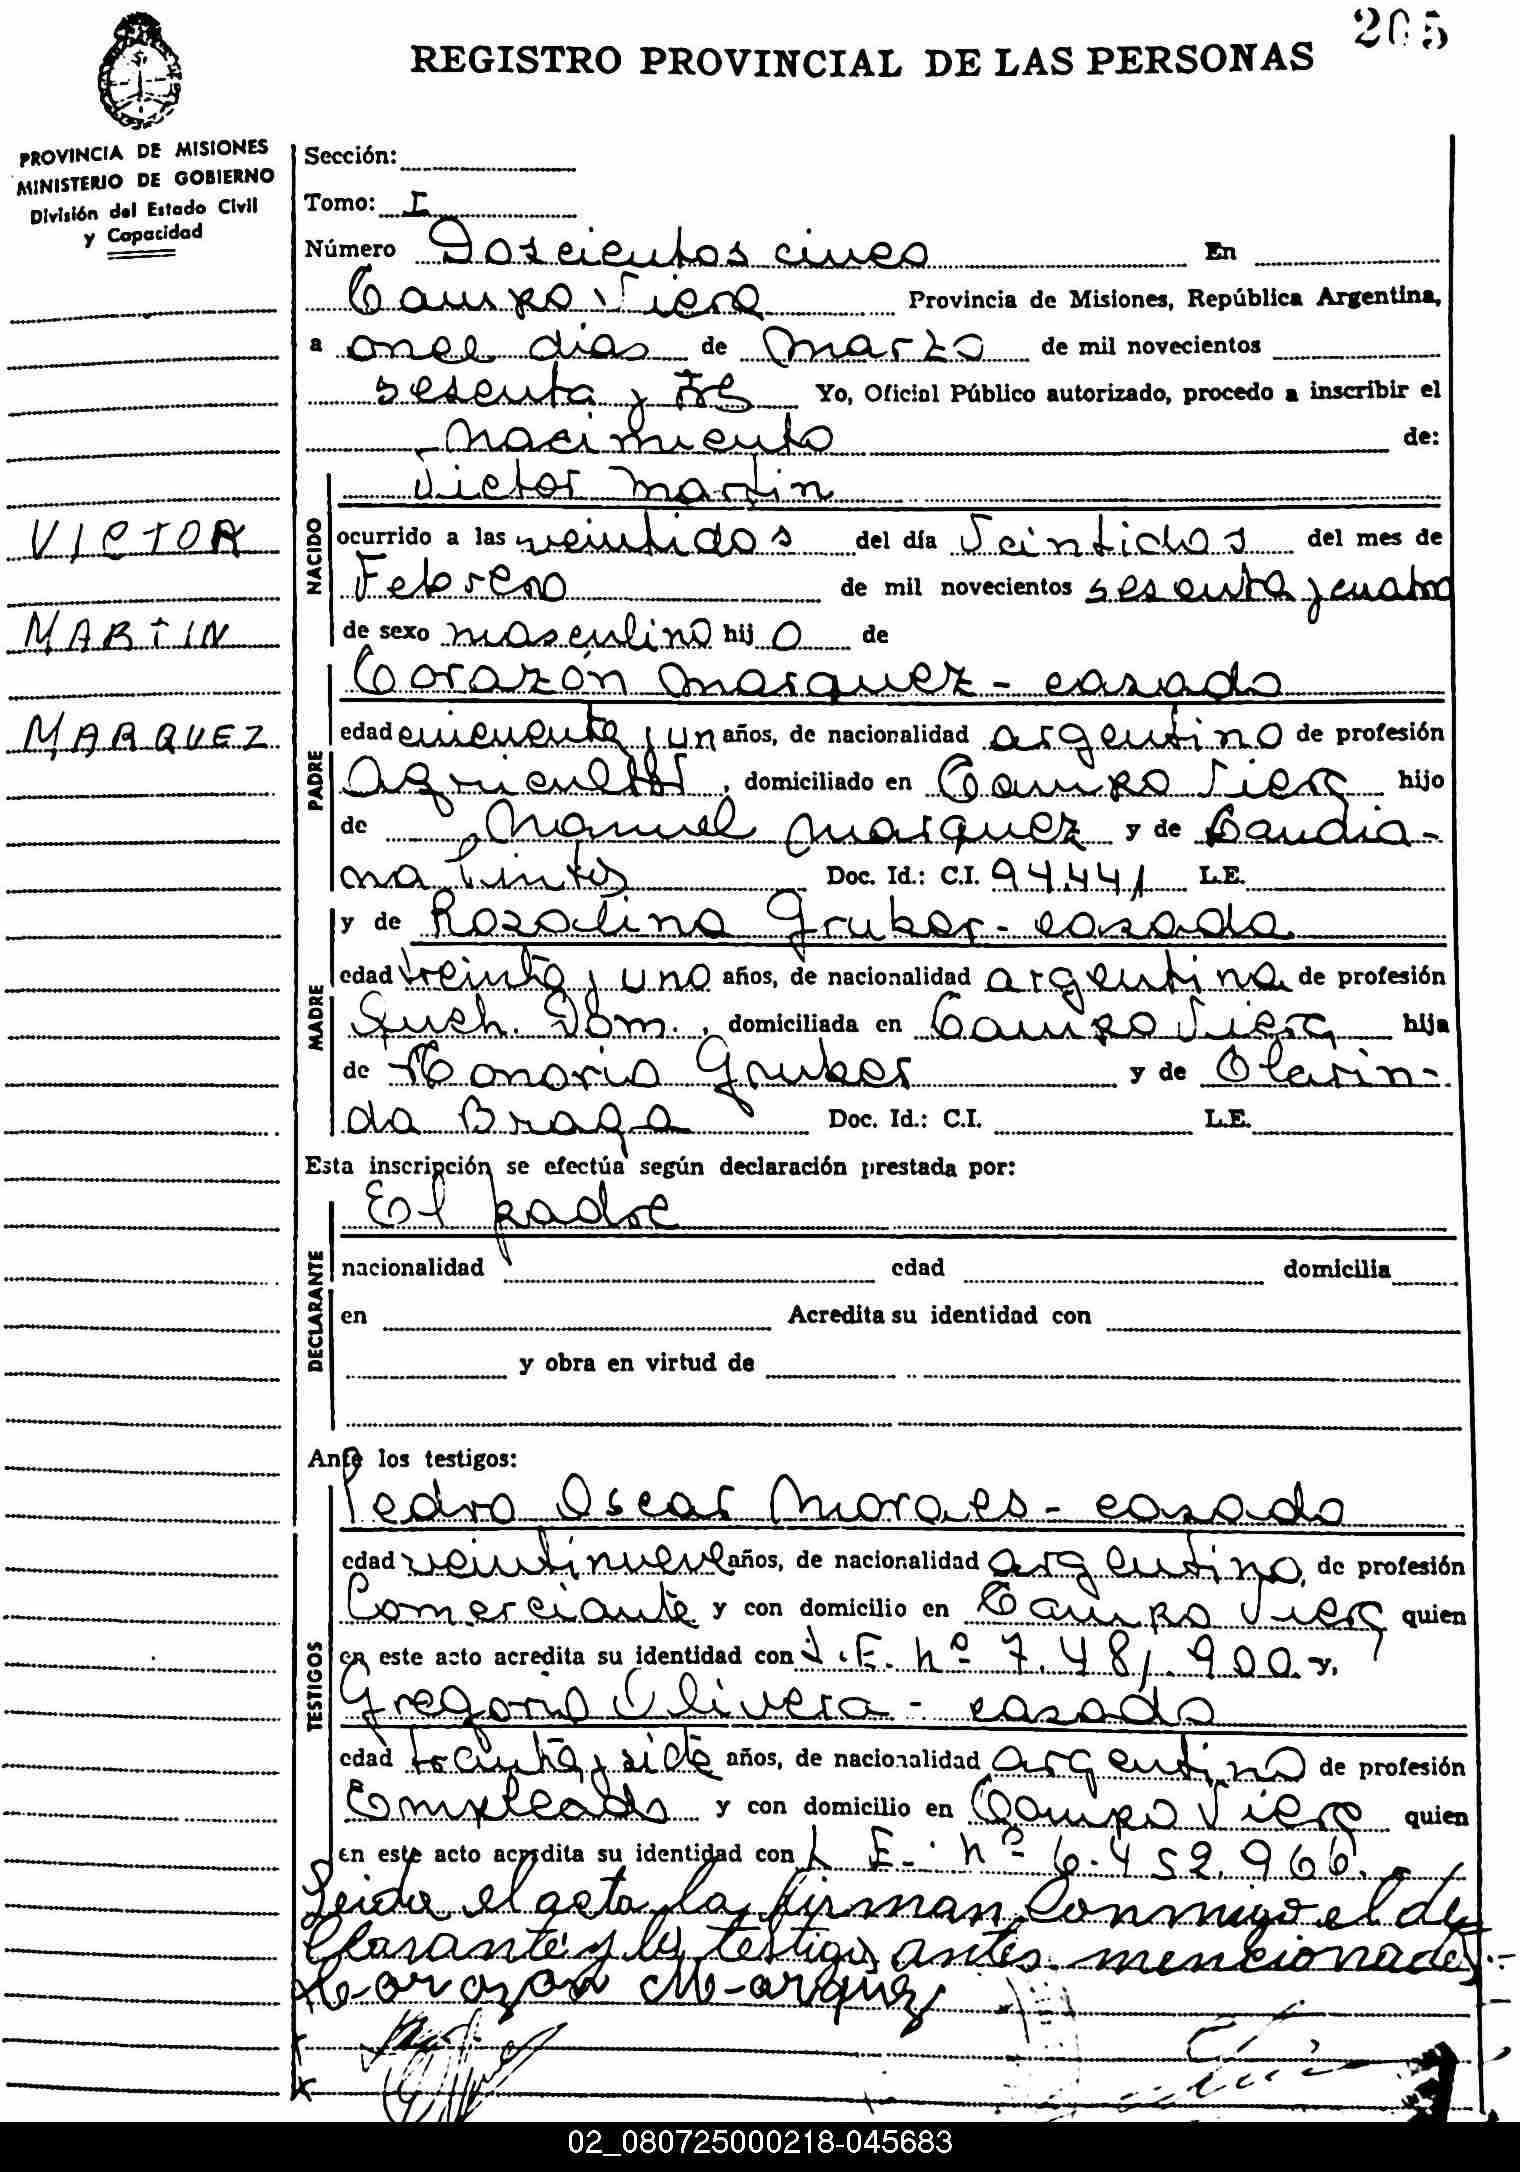 205
REGISTRO PROVINCIAL DE LAS PERSONAS
PROVINCIA DE MISIONES
MINISTERIO DE GOBIERNO
División del Estado Civil
y Capacidad
VICTOR
MARTIN
MARQUEZ
Sección:
Tomo: I
Número Doscientos cinco En
Campo Viera Provincia de Misiones, República Argentina,
a once dias de marzo de mil novecientos
sesenta y Yo, Oficial Público autorizado, procedo a inscribir el
nacimiento de:
Victor Martin
NACIDO
ocurrido a las veintidos del día Veintidos del mes de
Febrero de mil novecientos sesenta y cuatro
de sexo masculino hijo de
PADRE
Corazón Marquez - casado
edad cincuenta y un años, de nacionalidad argentino de profesión
Agricultor, domiciliado en Campo Viera hijo
de Manuel Marquez y de Caudia-
na Pintos Doc. Id.: C.I. 94.441 L.E.
MADRE
y de Rosalina Gruber - casada
edad treinta y uno años, de nacionalidad argentina de profesión
Queh. Dom., domiciliada en Campo Viera hija
de Honorio Gruber y de Clarin-
da Braga Doc. Id.: C.I. L.E.
Esta inscripción se efectúa según declaración prestada por:
DECLARANTE
El padre
nacionalidad edad domicilia
en Acredita su identidad con
y obra en virtud de
Ante los testigos:
TESTIGOS
Pedro Oscar Moraes - casado
edad veintinueve años, de nacionalidad argentino, de profesión
Comerciante y con domicilio en Campo Viera quien
en este acto acredita su identidad con L.E. nº 7.481.900 y,
Gregorio Olivera - casado
edad treinta y siete años, de nacionalidad argentino de profesión
Empleado y con domicilio en Campo Viera quien
en este acto acredita su identidad con L.E. nº 6.452.966.
Leida el acta la firman conmigo el de
clarante y los testigos antes mencionados.-
Corazon Marquez
02_080725000218-045683